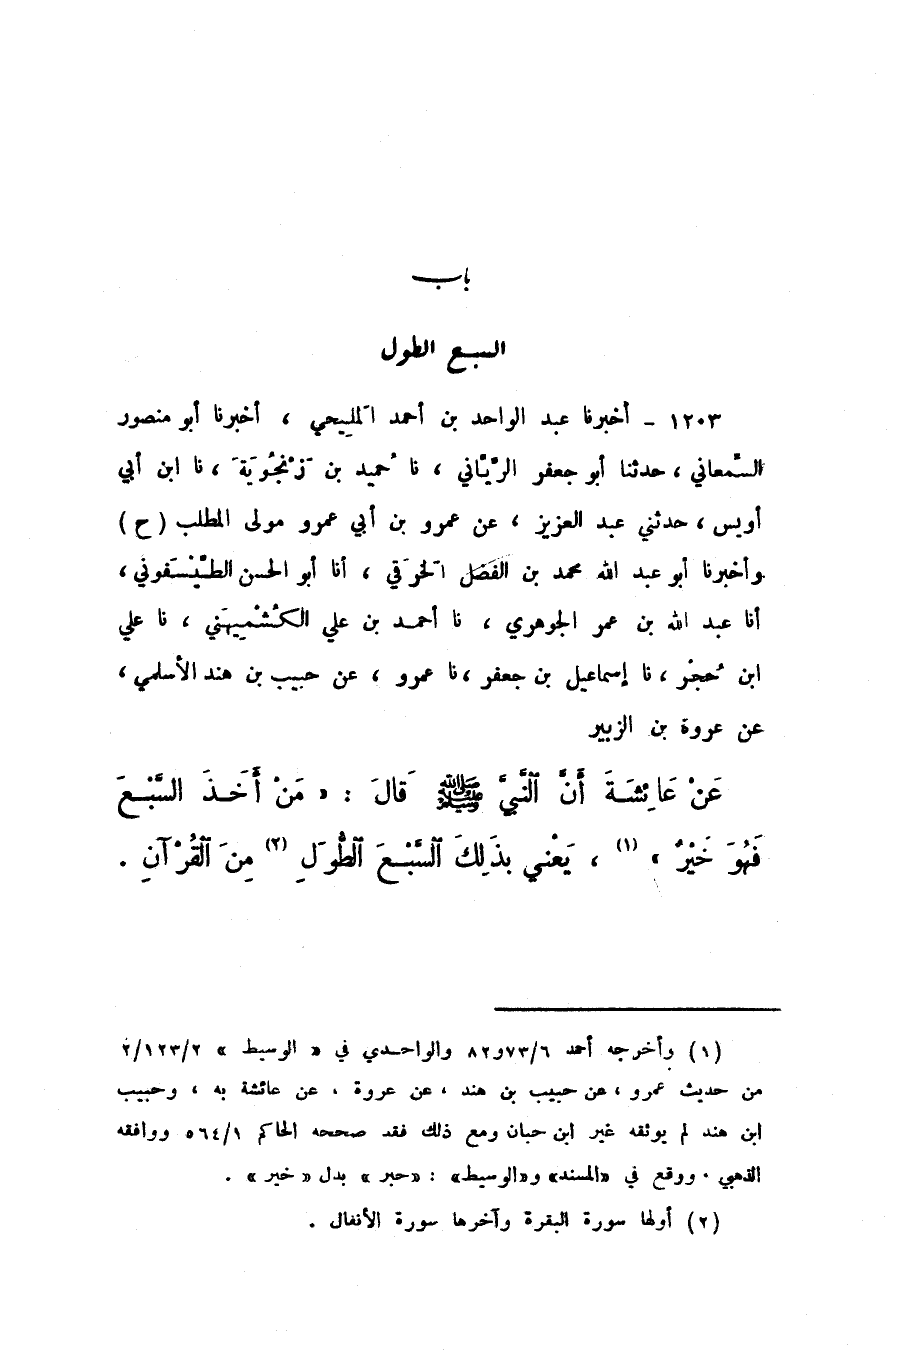 باب
السبع الطول
١٢٠٣ - أخبرنا عبد الواحد بن أحمد المَليحي ، أخبرنا أبو منصور
السَّمعاني ، حدثنا أبو جعفر الرَّيَّاني ، نا حُميد بن زَنْجُويَة َ ، نا ابن أبي
أويس ، حدثني عبد العزيز ، عن عمرو بن أبي عمرو مولى المطلب ( ح )
وأخبرنا أبو عبد الله محمد بن الفضل الخَرَقي ، أنا أبو الحسن الطَّيْسَفوني ،
أنا عبد الله بن عمر الجوهري ، نا أحمد بن علي الكُشْمِيهَني ، نا علي
ابن حُجْر ، نا إسماعيل بن جعفر ، نا عمرو ، عن حبيب بن هند الأسلمي ،
عن عروة بن الزبير
عَنْ عَائِشَةَ أَنَّ ٱلنَّبيَّ ﷺ قَالَ : « مَنْ أَخَذَ السَّبْعَ
فَهُوَ خَيْرٌ » (١) ، يَعْني بِذَلِكَ ٱلسَّبْعَ ٱلطُّوَلِ (٢) مِنَ ٱلقُرْآنِ .
(١) وأخرجه أحمد ٧٣/٦و٨٢ والواحدي في « الوسيط » ٢/١٢٣/٢
من حديث عمرو ، عن حبيب بن هند ، عن عروة ، عن عائشة به ، وحبيب
ابن هند لم يوثقه غير ابن حبان ومع ذلك فقد صححه الحاكم ٥٦٤/١ ووافقه
الذهبي . ووقع في «المسند» و«الوسيط» : «حبر» بدل « خير » .
(٢) أولها سورة البقرة وآخرها سورة الأنفال .